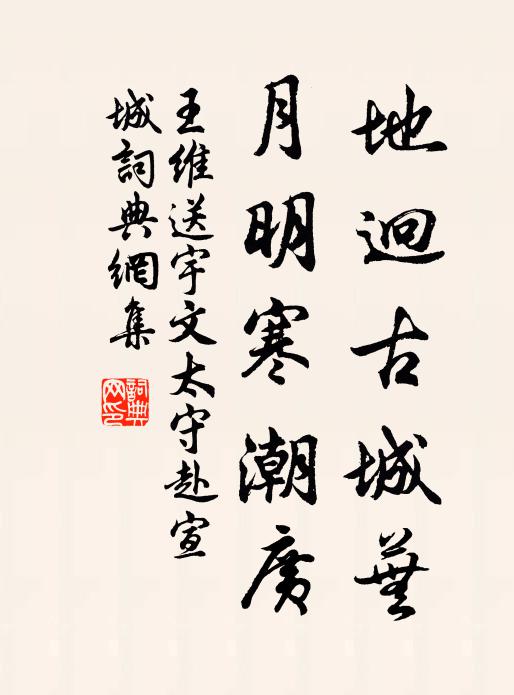 地迥古城蕪
月明寒潮廣
王維送宇文太守赴宣
城詞典網集
詞典网印